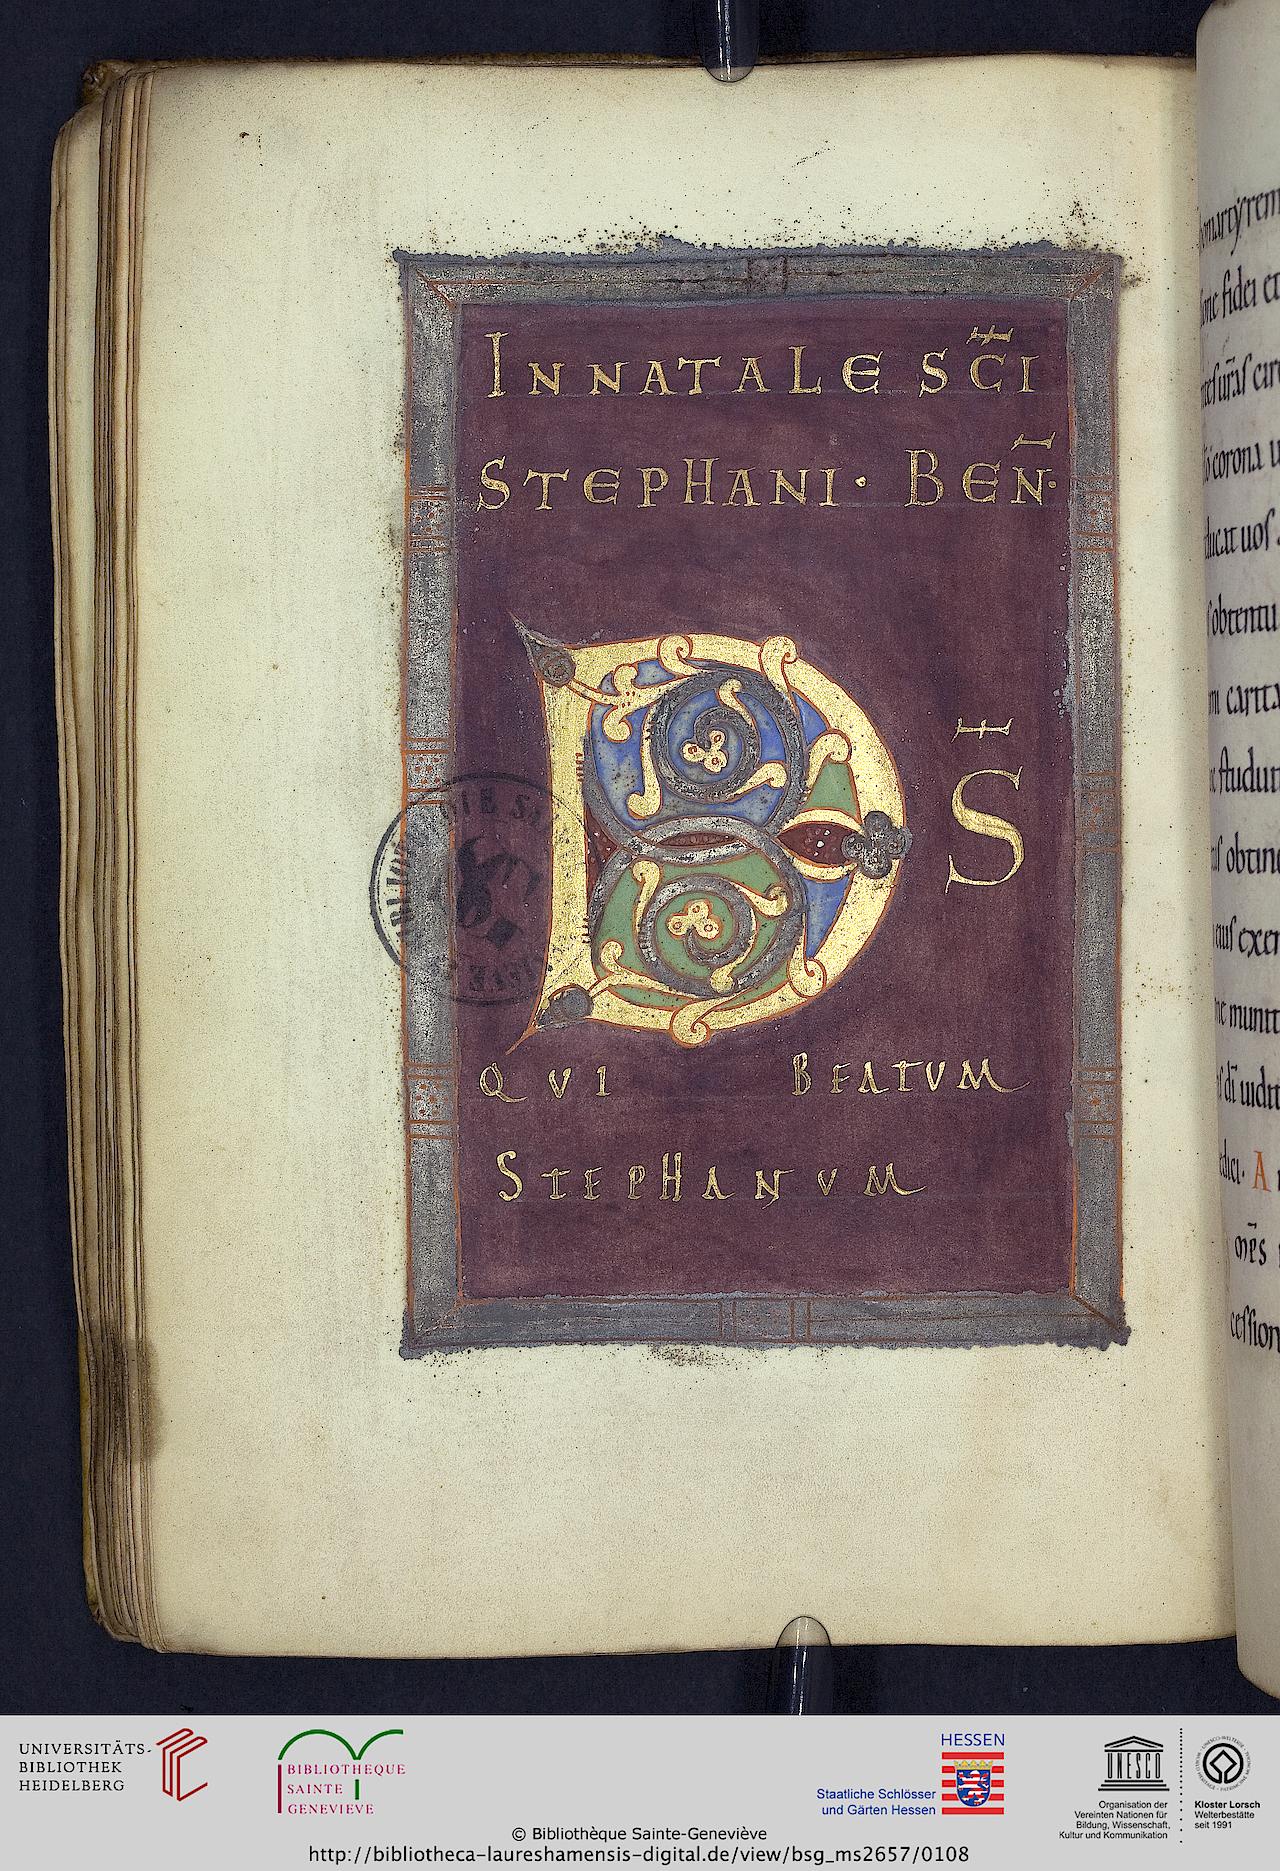 INNATALE SC̅I
STEPHANI · BEN̅·
D S̅
QVI BEATVM
STEPHANVM
fidei et
corona
ducat uos
obtentu
carita
obtine
exem
munit
dici· A
om̅s
cession
UNIVERSITÄTS-
BIBLIOTHEK
HEIDELBERG
BIBLIOTHEQUE
SAINTE
GENEVIEVE
HESSEN
Staatliche Schlösser
und Gärten Hessen
UNESCO
Organisation der
Vereinten Nationen für
Bildung, Wissenschaft,
Kultur und Kommunikation
Kloster Lorsch
Welterbestätte
seit 1991
© Bibliothèque Sainte-Geneviève
http://bibliotheca-laureshamensis-digital.de/view/bsg_ms2657/0108